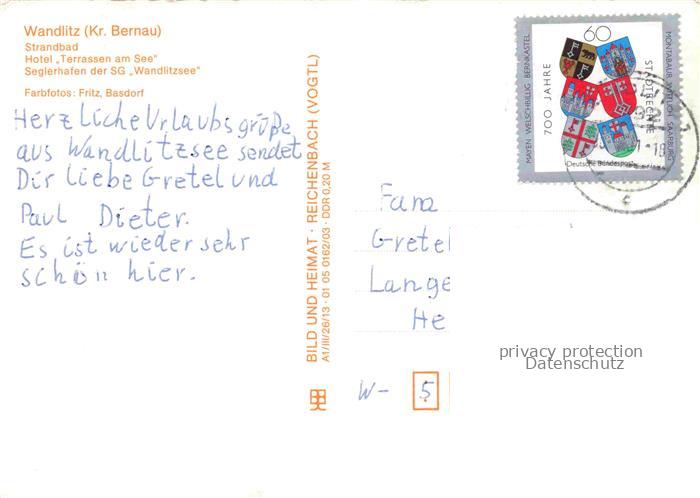 Wandlitz (Kr. Bernau)
Strandbad
Hotel „Terrassen am See"
Seglerhafen der SG „Wandlitzsee"
Farbfotos: Fritz, Basdorf
Herzliche Urlaubsgrüße
aus Wandlitzsee sendet
Dir liebe Gretel und
Paul Dieter.
Es ist wieder sehr
schön hier.
BILD UND HEIMAT · REICHENBACH (VOGTL)
A1/III/26/13 · 01 05 0162/03 · DDR 0,20 M
60
700 JAHRE
STADTRECHTE
MAYEN WELSCHBILLIG BERNKASTEL
MONTABAUR WITTLICH SAARBURG
Deutsche Bundespost
Gretel
Lange
He
W- 5
privacy protection
Datenschutz